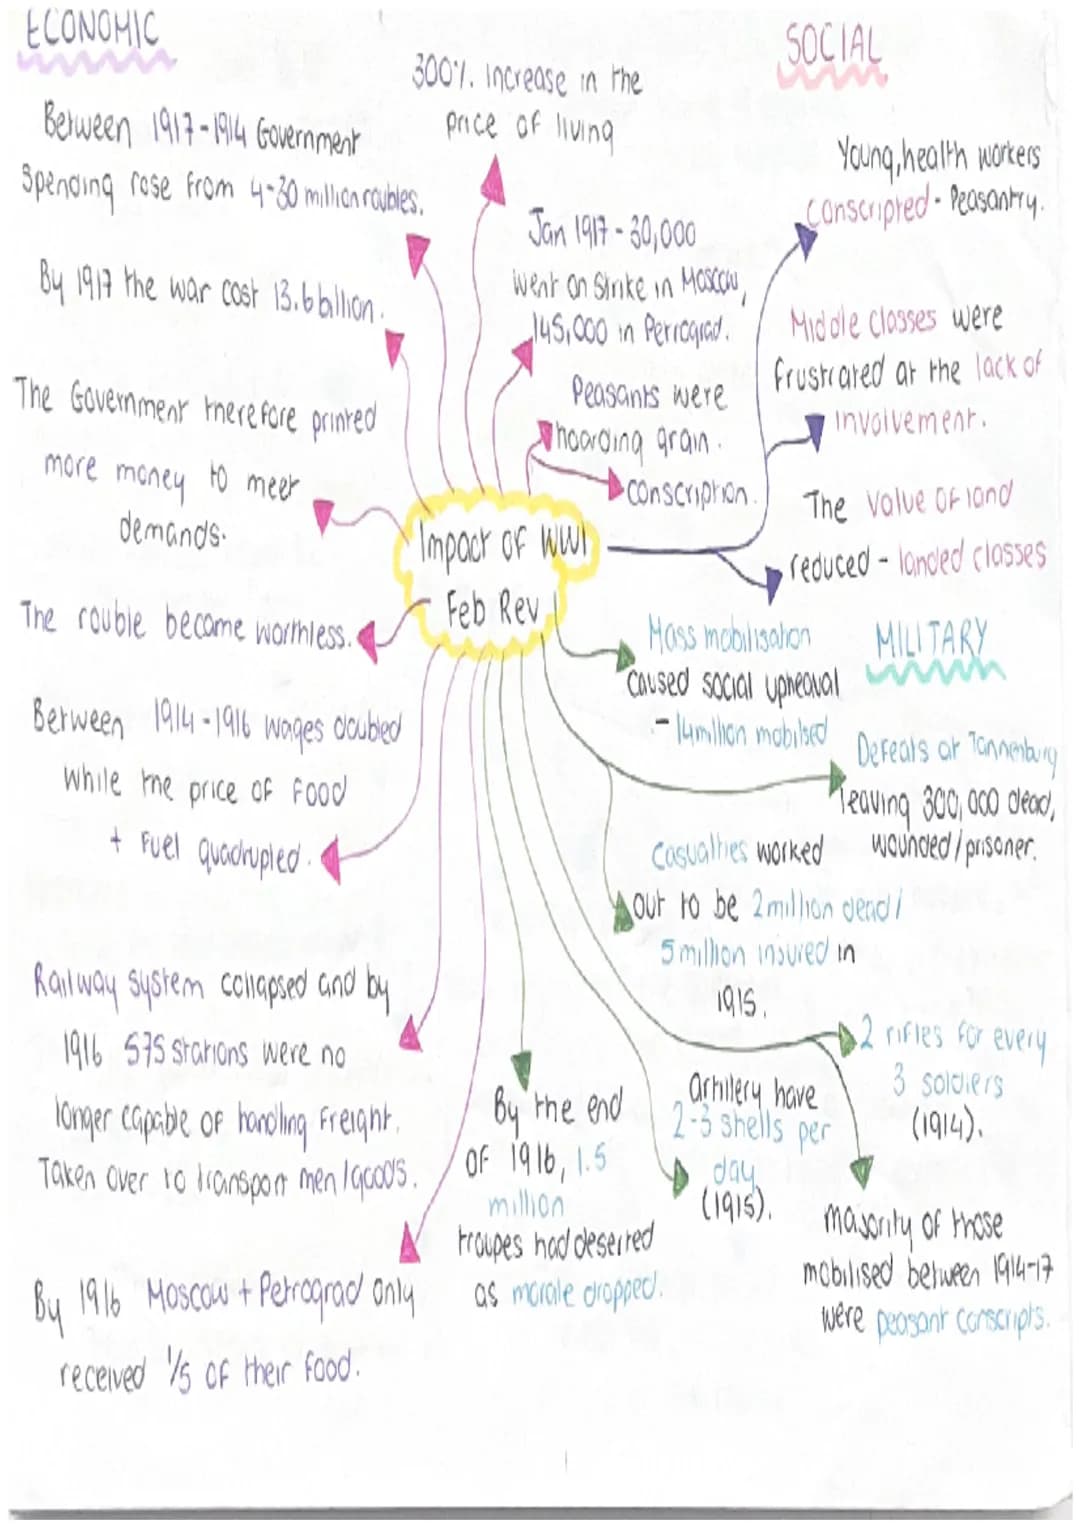 ECONOMIC
Between 1917-1914 Government
Spending rose from 4-30 million roubles.
By 1917 the war cost 13.6 billion.
The Government therefore printed
more money to meet
demands.
The rouble became worthless.
Between 1914-1916 wages doubled
while the price of food
+ Fuel quadrupled.
Railway system collapsed and by
1916 575 stations were no
longer capable of handling freight.
Taken over to transport men/goods.
By 1916 Moscow + Petrograd only
received 1/5 of their food.
300% increase in the
price of living
Jan 1917 - 30,000
went on strike in Moscow,
145,000 in Petrograd.
Peasants were
hoarding grain.
conscription.
Impact of WW1
Feb Rev
SOCIAL
Young, health workers
Conscripted - Peasantry.
Middle classes were
frustrated at the lack of
involvement.
The value of land
reduced - landed classes
MILITARY
Mass mobilisation
caused social upheaval
- 14million mobilsed
Defeats at Tannenburg
leaving 300,000 dead,
wounded/prisoner.
Casualties worked
out to be 2 million dead/
5 million insured in
1915.
2 rifles for every
3 soldiers
(1914).
Artillery have
2-3 shells per
day
(1915).
By the end
of 1916, 1.5
million
troupes had deserted
as morale dropped.
majority of those
mobilised between 1914-17
were peasant conscripts.